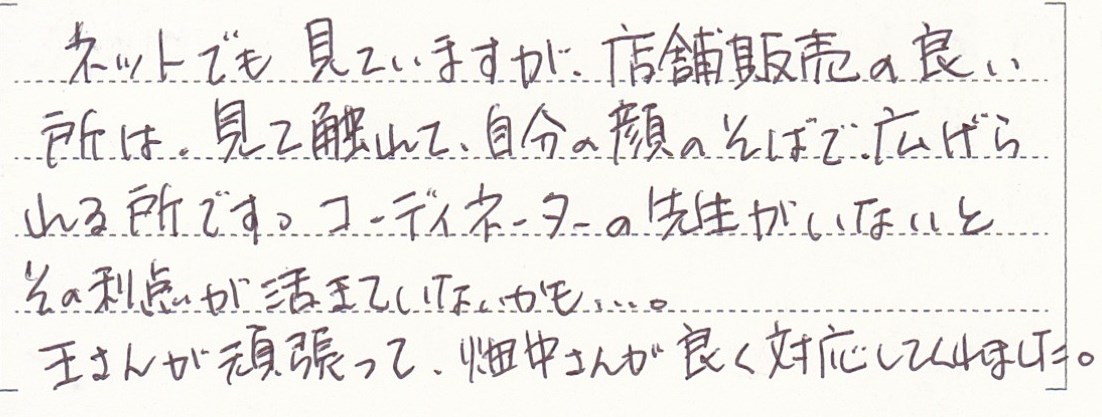 ネットでも見ていますが、店舗販売の良い
所は、見て触れて、自分の顔のそばで広げら
れる所です。コーディネーターの先生がいないと
その利点が活きていないかも…。
王さんが頑張って、畑中さんが良く対応してくれました。